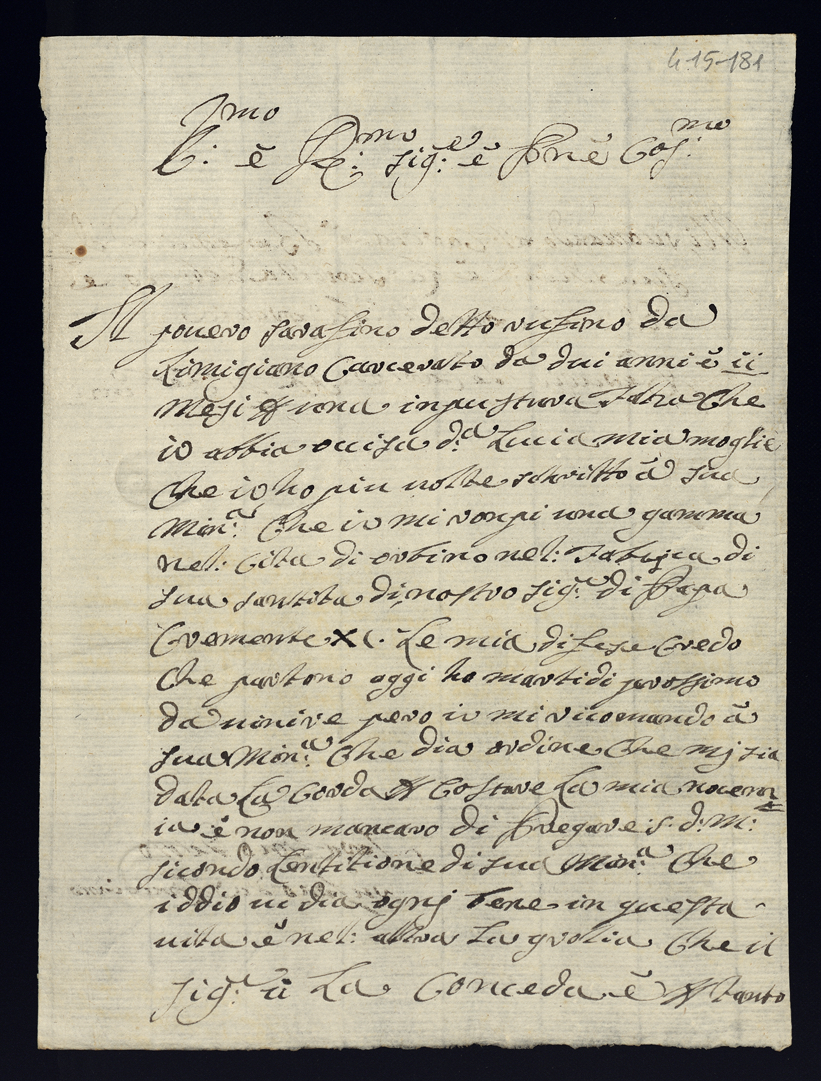 4-15-181
Ill:mo è R:mo sig:e è Pnè Cos:mo
Il povero savafino detto vusfino da
Limigiano Carcerato da dui anni è ii
mesi una inpustura falza Che
io abbia occisa d:a Lucia mia moglie
Che io ho piu uolte schritto à sua
Mon:a Che io mi ronpi una gamma
nel: Cita di orbino nel: fabrjca di
sua santita di nostro sig:e di Papa
Cremente XI. Le mia difese Credo
Che partono aggi ho martidi prossimo
da uinire pero io mi ricomando à
sua Mon:a Che dia ordine Che mj sia
data La Corda Costare La mia nocenn=
ia è non mancaro di Pregare: s: d: M:
sicondo Lentitione di sua Mon:a Che
iddio ui dia ognj bene in questa
uita è nel: altra La grolia Che il
sig:e ti La Conceda è tanto